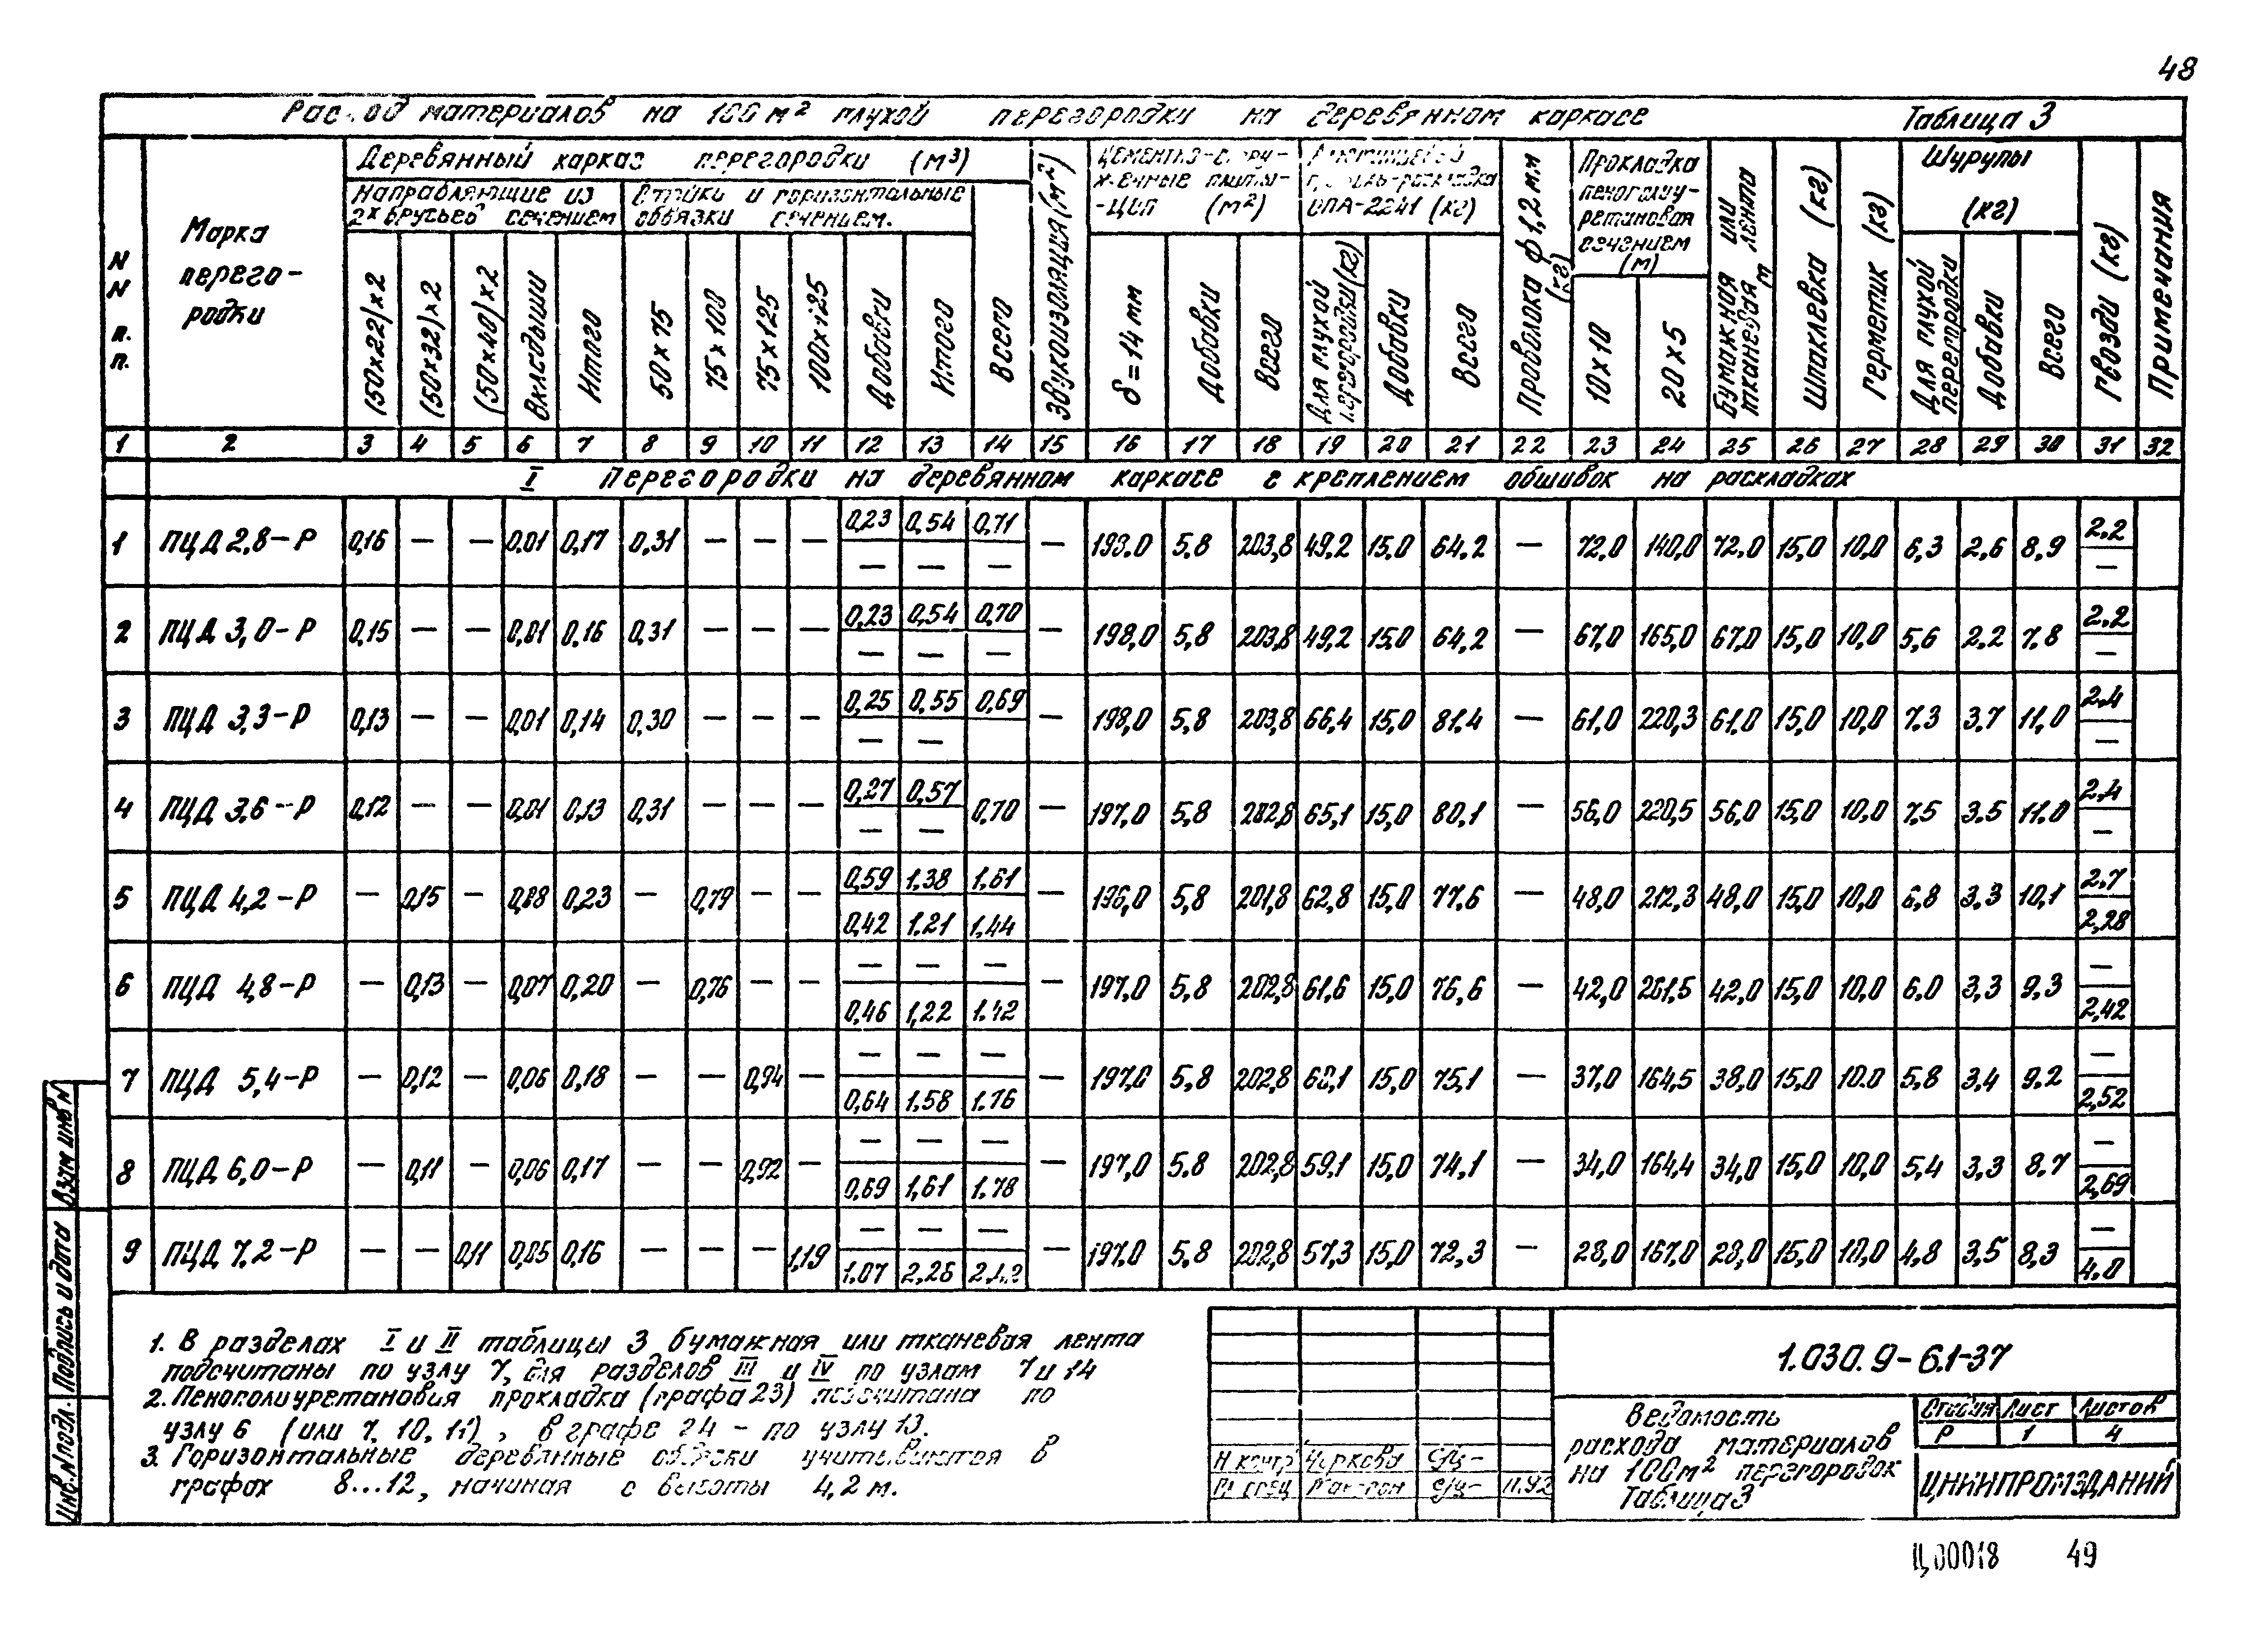 48
Расход материалов на 100 м² глухой перегородки на деревянном каркасе Таблица 3
NN п.п.
Марка перего-родки
Деревянный каркас перегородки (м³)
Направляющие из 2х брусьев сечением
(50х22)х2
(50х32)х2
(50х40)х2
Вкладыши
Итого
Стойки и горизонтальные обвязки сечением.
50х75
75х100
75х125
100х125
Добавки
Итого
Всего
Звукоизоляция (м²)
Цементно-стру-жечные плиты-ЦСП (м²)
δ=14 мм
Добавки
Всего
профиль-раскладка СПА-2241 (кг)
Для глухой перегородки (кг)
Добавки
Всего
Проволока ф1,2мм (кг)
Прокладка пенополиу-ретановая сечением (м)
10х10
20х5
Бумажная или тканевая лента м
Шпаклевка (кг)
Герметик (кг)
Шурупы (кг)
Для глухой перегородки
Добавки
Всего
Гвозди (кг)
Примечания
1 2 3 4 5 6 7 8 9 10 11 12 13 14 15 16 17 18 19 20 21 22 23 24 25 26 27 28 29 30 31 32
I Перегородки на деревянном каркасе с креплением обшивок на раскладках
1 ПЦД 2,8-Р 0,16 — — 0,01 0,17 0,31 — — — 0,23 0,54 0,71 — 198.0 5.8 203,8 49.2 15.0 64.2 — 72,0 140,0 72.0 15,0 10,0 6,3 2,6 8,9 2,2
— — — —
2 ПЦД 3,0-Р 0,15 — — 0,01 0.16 0,31 — — — 0,23 0,54 0,70 — 198.0 5.8 203,8 49,2 15,0 64,2 — 67,0 165,0 67,0 15,0 10,0 5,6 2,2 7.8 2,2
— — — —
3 ПЦД 3,3-Р 0,13 — — 0,01 0,14 0,30 — — — 0,25 0,55 0,69 — 198,0 5.8 203,8 66,4 15,0 81.4 — 61.0 220,3 61.0 15,0 10,0 7.3 3,7 11,0 2,4
— — —
4 ПЦД 3.6-Р 0,12 — — 0,01 0,13 0,31 — — — 0,27 0,57 0,70 — 197.0 5,8 202,8 65,1 15,0 80,1 — 56,0 220,5 56,0 15,0 10,0 7,5 3.5 11.0 2,4
— — —
5 ПЦД 4,2-Р — 0,15 — 0,08 0,23 — 0,79 — — 0,59 1.38 1,61 — 196,0 5.8 201,8 62,8 15,0 77.6 — 48,0 212,3 48,0 15,0 10,0 6,8 3,3 10,1 2,7
0,42 1.21 1,44 2,28
6 ПЦД 4,8-Р — 0,13 — 0,07 0,20 — 0,76 — — — — — — 197.0 5,8 202,8 61,6 15,0 76,6 — 42,0 42,0 15,0 10,0 6.0 3,3 9.3 —
0,46 1,22 1.42 2,42
7 ПЦД 5,4-Р — 0,12 — 0,06 0,18 — — 0,94 — — — — — 197.0 5,8 202,8 60,1 15,0 75,1 — 37,0 164,5 38,0 15,0 10.0 5,8 3,4 9.2 —
0,64 1.58 1.76 2,52
8 ПЦД 6,0-Р — 0,11 — 0,06 0,17 — — 0,92 — — — — — 197.0 5.8 202,8 59,1 15,0 74,1 — 34,0 164,4 34,0 15,0 10,0 5,4 3,3 8,7 —
0,69 1,61 1.78 2,69
9 ПЦД 7.2-Р — — 0,11 0,05 0,16 — — — 1,19 — — — — 197.0 5.8 202,8 57,3 15,0 72,3 — 28,0 167,0 28,0 15,0 10,0 4,8 3,5 8,3 —
1.07 2,26 4.0
1. В разделах I и II таблицы 3 бумажная или тканевая лента
подсчитаны по узлу 7, для разделов III и IV по узлам 7 и 14
2. Пенополиуретановая прокладка (графа 23) подсчитана по
узлу 6 (или 7, 10, 11), в графе 24 - по узлу 13.
3. Горизонтальные деревянные обвязки учитываются в
графах 8...12, начиная с высоты 4,2 м.
1.030.9-6.1-37
Ведомость
расхода материалов
на 100м² перегородок
Таблица 3
Стадия Лист Листов
Р 1 4
ЦНИИПРОМЗДАНИЙ
Н.контр Чоркова
11.92
Инв.N подл. Подпись и дата Взам инв N
Ц00018 49